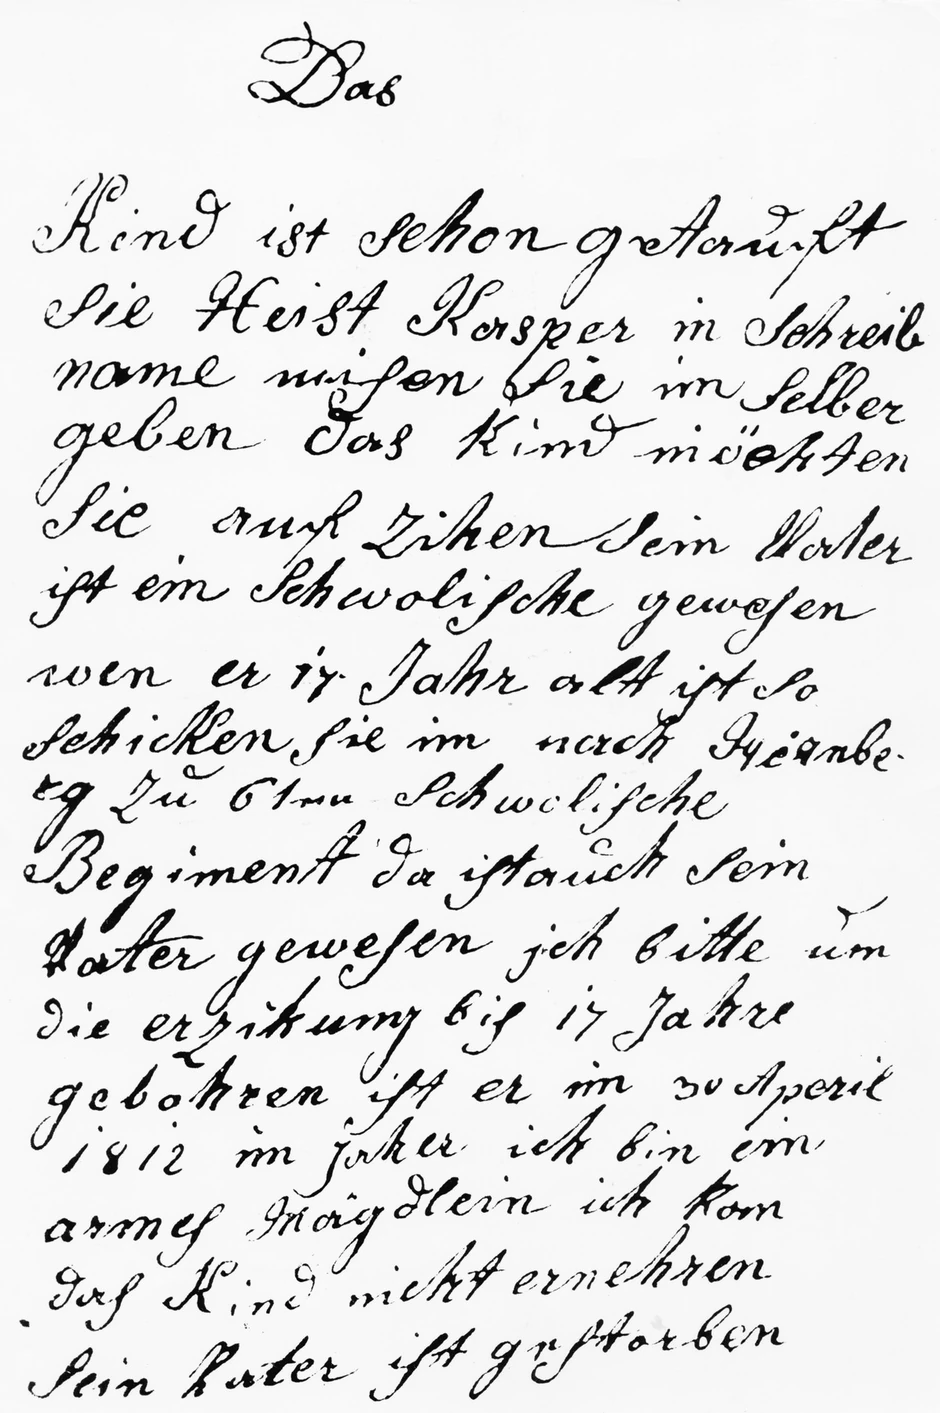 Das
Kind ist schon getauft
Sie Heist Kasper in Schreib
name misen Sie im selber
geben das Kind möchten
Sie auf Zihen Sein Vater
ist ein Schwolische gewesen
wen er 17 Jahr alt ist so
schicken Sie im nach Nиrnbe-
rg Zu 6ten Schwolische
Begiment da ist auch sein
Vater gewesen ich bitte um
die erzikung bis 17 Jahre
gebohren ist er im 30 Aperil
1812 im Jaher ich bin ein
armes Mägdlein ich kan
das Kind nicht ernehren
Sein Vater ist gestorben